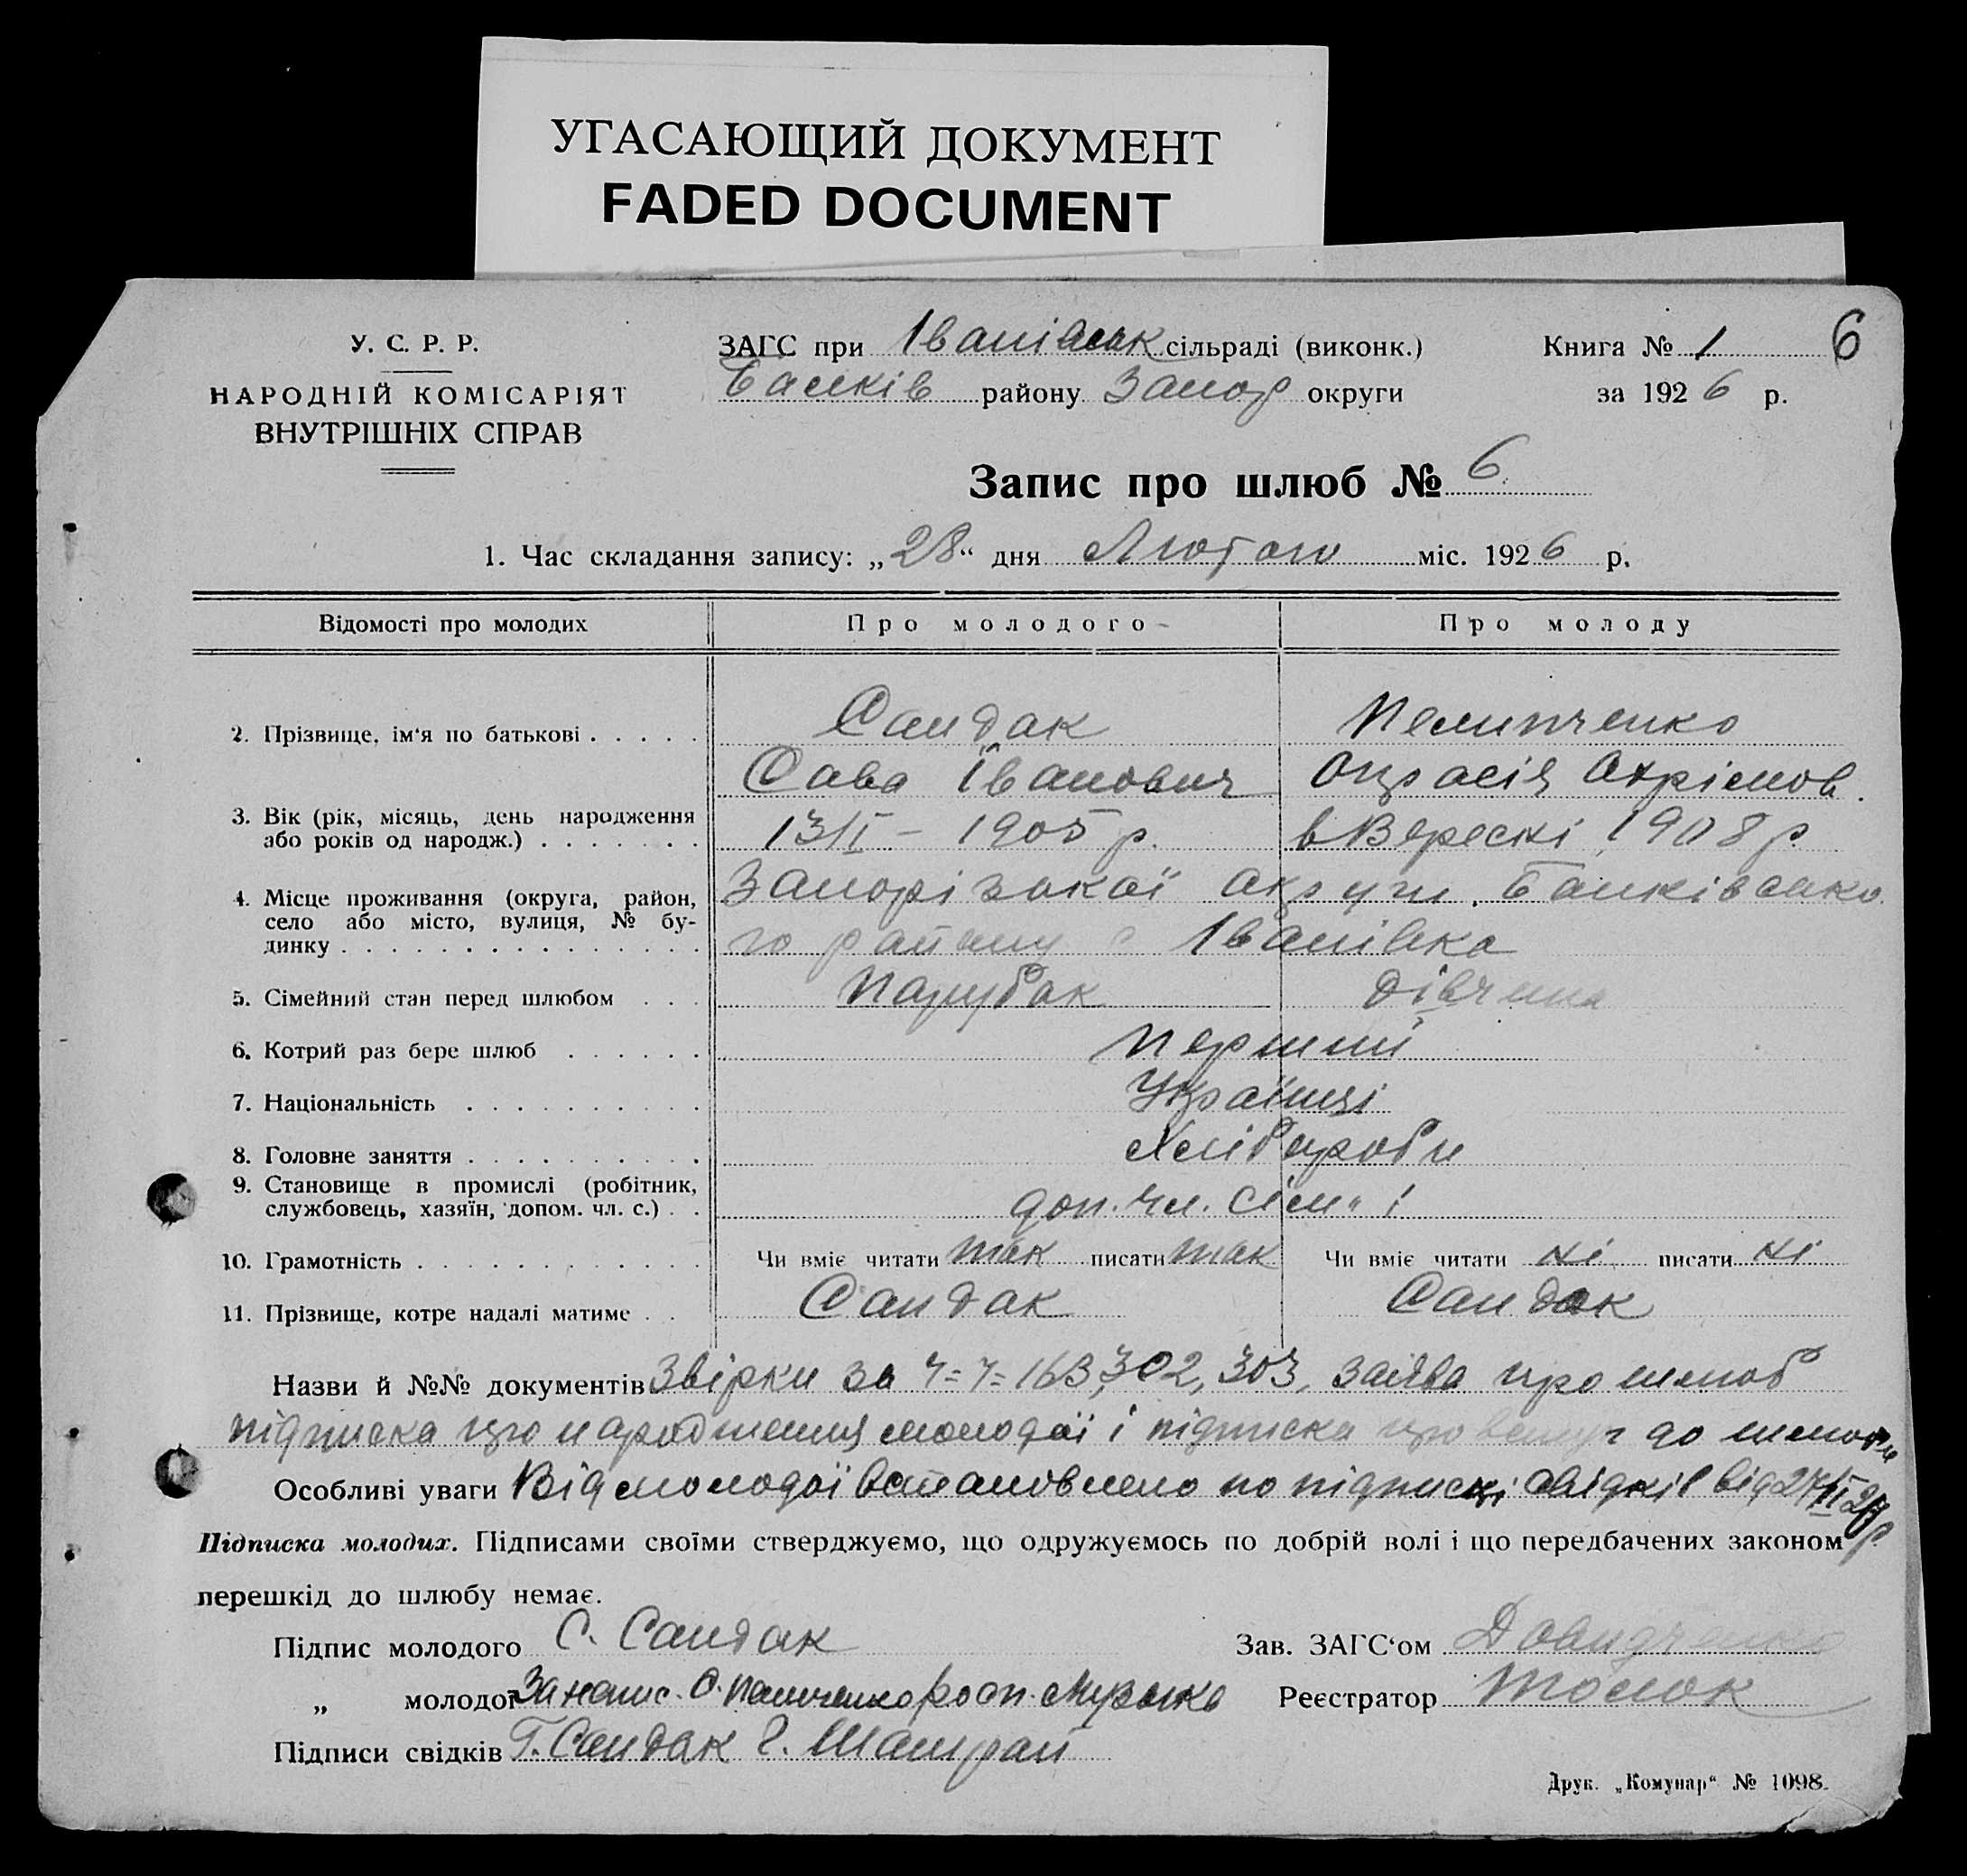 УГАСАЮЩИЙ ДОКУМЕНТ
FADED DOCUMENT
У. С. Р. Р.
НАРОДНІЙ КОМІСАРІЯТ
ВНУТРІШНІХ СПРАВ
ЗАГС при Іванівськ сільраді (виконк.)
Балків району Запор округи
Книга № 1
6
за 1926 р.
Запис про шлюб № 6
1. Час складання запису: „28“ дня Лютого міс. 1926 р.
Відомості про молодих Про молодого Про молоду
2. Прізвище, ім'я по батькові . . . . . Сандак Пелипченко
Сава Іванович Охрім ов.
3. Вік (рік, місяць, день народження або років од народж.) . . . . . . . 13/II – 1905 р. в Вересні 1908 р.
4. Місце проживання (округа, район, село або місто, вулиця, № будинку . . . . . . . . . . . . . . . Запорізької округи, Балківсько
го району с Іванівка
5. Сімейний стан перед шлюбом . . . Парубак дівчина
6. Котрий раз бере шлюб . . . . . . перший
7. Національність . . . . . . . . . . Українці
8. Головне заняття . . . . . . . . . . Хлібороби
9. Становище в промислі (робітник, службовець, хазяїн, допом. чл. с.) . . доп. чл. сім"ї
10. Грамотність . . . . . . . . . . . . Чи вміє читати так писати так Чи вміє читати ні писати ні
11. Прізвище, котре надалі матиме . . Сандак Сандак
Назви й №№ документів Звірки за ч=ч= 163, 302, 303, заява про шлюб
підписка про народження молодої і підписка про вступ до шлюбу
Особливі уваги Вік молодої встановлено по підписці свідків від 27/II 26 р
Підписка молодих. Підписами своїми стверджуємо, що одружуємось по добрій волі і що передбачених законом
перешкід до шлюбу немає.
Підпис молодого С. Сандак
Зав. ЗАГС‘ом Давидченко
„ молодої За непис. О. росп. Музыка
Реєстратор
Підписи свідків Г. Сандак Г. Шамрай
Друк. „Комунар“ № 1098.